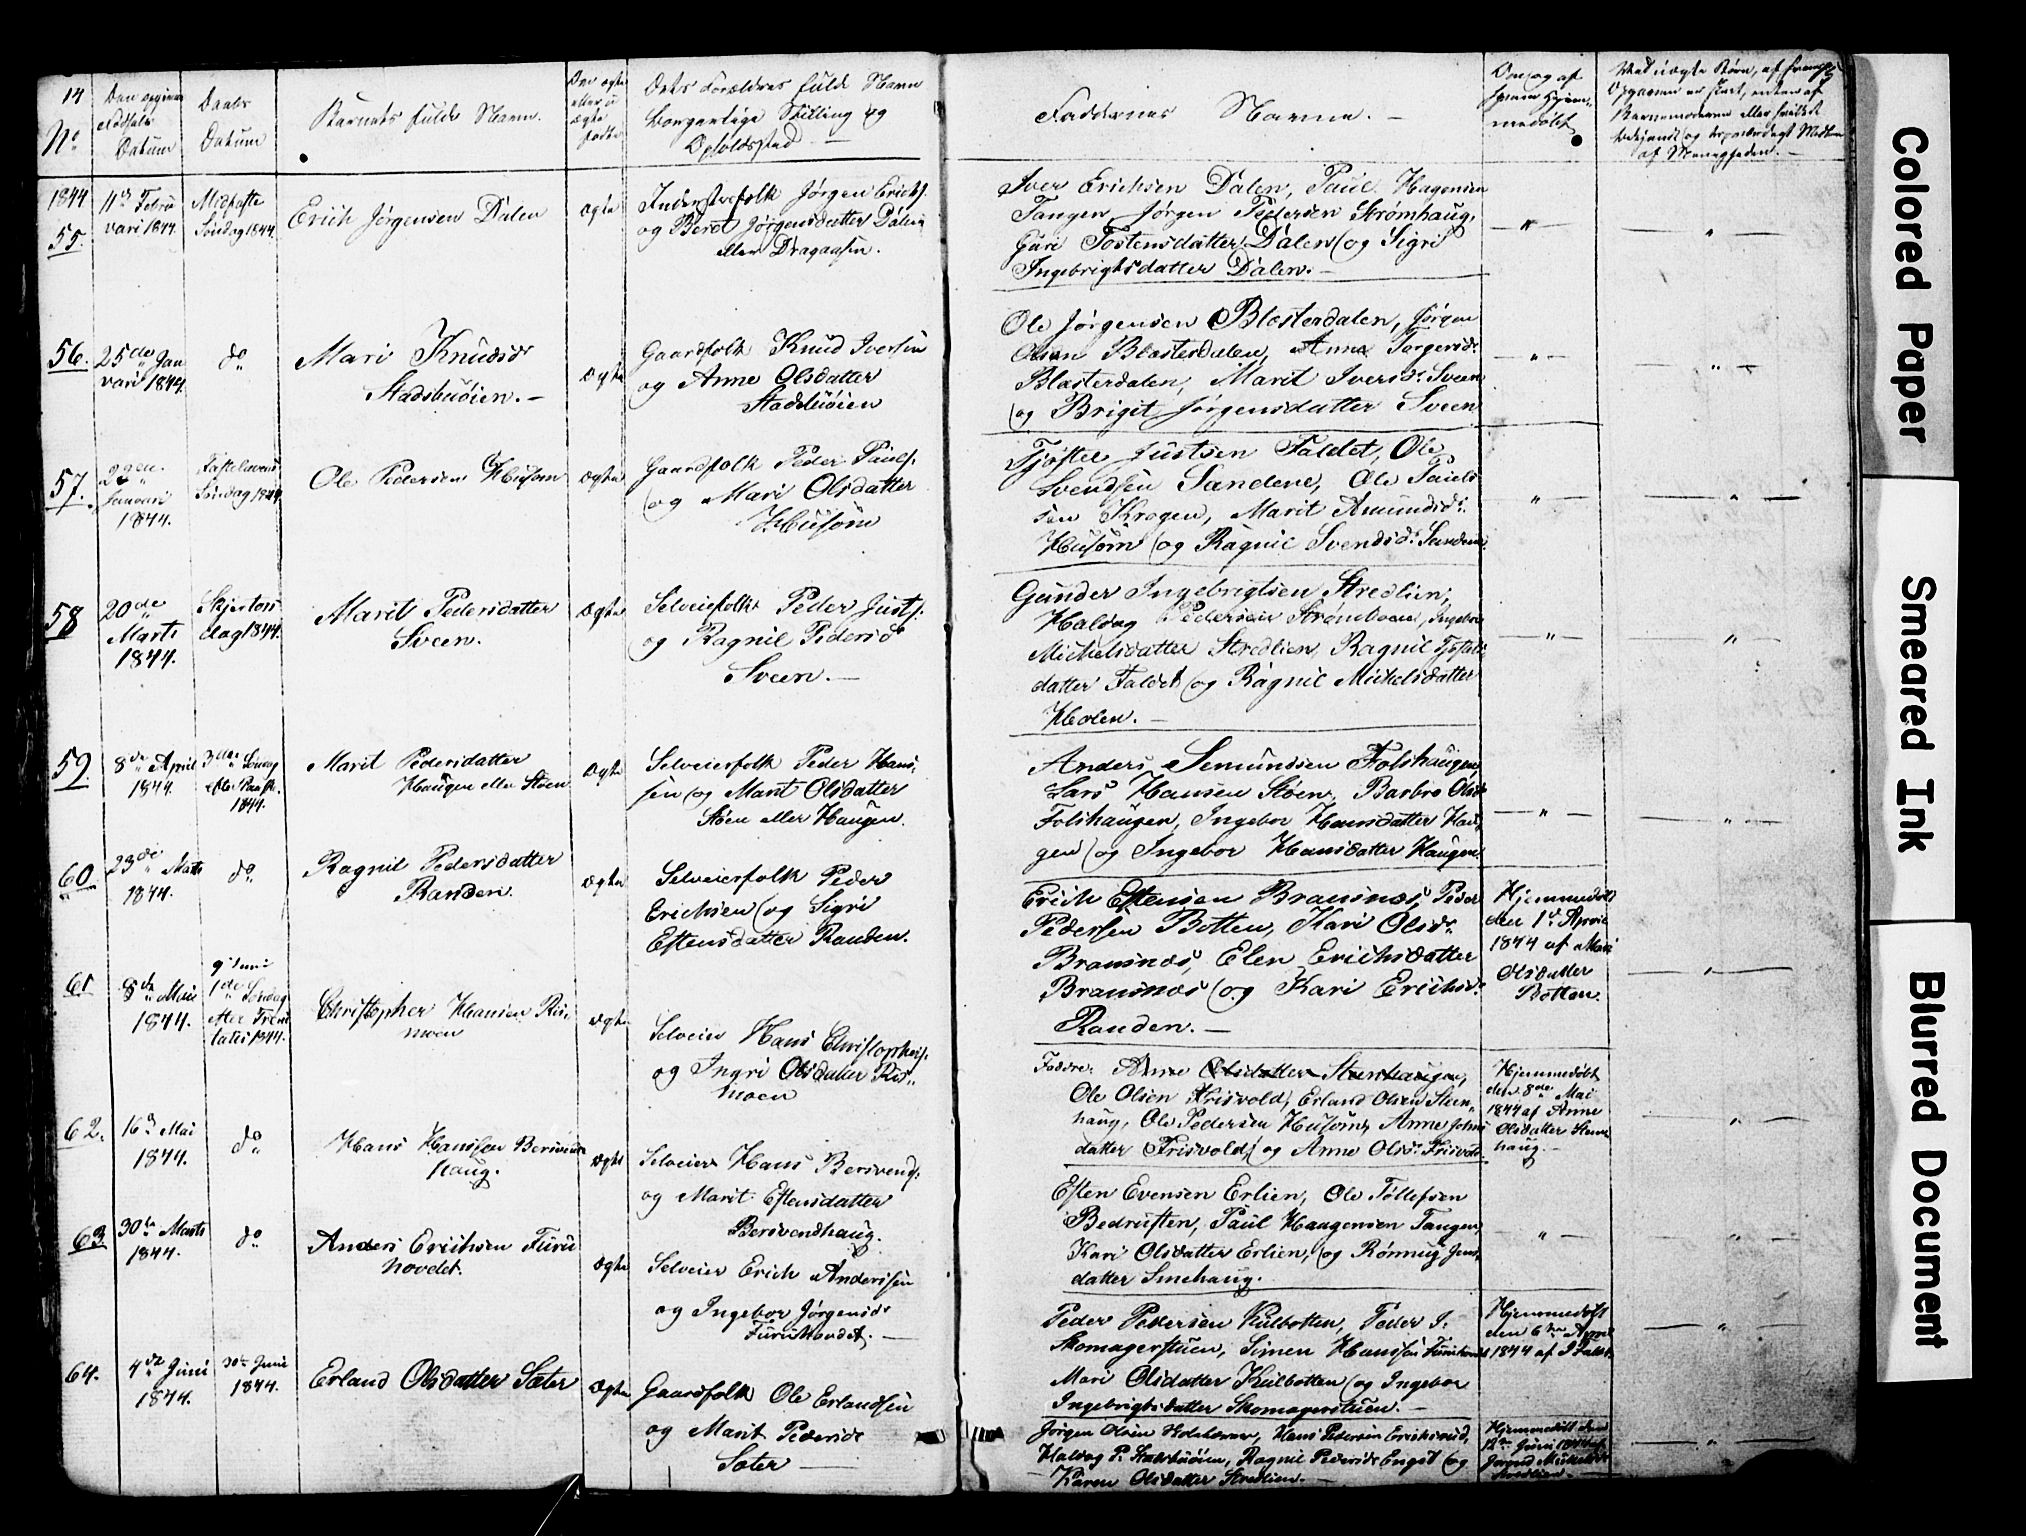 14
No
Den opgivne
Fødsels
Datum
Daabs
Datum
Barnets fulde Navn.
Om ægte
eller u
ægte
født
Dets Forældres fulde Navn
borgerlige Stilling og
Opholdssted
Faddernes Navne.
Om og af
hvem hjem-
medøbt
1844
55.
11te Febru
vari 1844.
Midfaste
Søndag 1844.
Erich Jørgensen Dalen
ægte
Inderstefolk Jørgen Erichs.
og Beret Jørgensdatter Dalen
eller Dragaasen.
Iver Erichsen Dalen, Paul Hagensen
Tangen, Jørgen Pedersen Strømhaug,
Guri Tostensdatter Dalen og Sigri
Ingebrigtsdatter Dalen.
56.
25de Jan
vari 1844.
do
Mari Knudsdr
Stadsbuøien.
ægte
Gaardfolk Knud Iversen
og Anne Olsdatter
Stadsbuøien
Ole Jørgensen Blæsterdalen, Jørgen
Olsen Blæsterdalen, Anne Torgersdr
Blæsterdalen, Marit Iversdr Sveen
og Brigit Jørgensdatter Sveen
57.
Januari
1844.
Fastelavens
Søndag 1844
Ole Pedersen Husom
ægte
Gaardfolk Peder Pauls.
og Mari Olsdatter
Husom
Tjøstel Justsen Faldet, Ole
Svendsen Sandene, Ole Pauls
sen Krogen, Marit Amundsdr
Husom og Ragnil Svendsdr Sandene
58
20de
Marts
1844.
Skjertors
dag 1844.
Marit Pedersdatter
Sveen.
ægte
Selveierfolk Peder Justs.
og Ragnil Pedersdr
Sveen.
Gunder Ingebrigtsen Stredlien,
Haldog Pedersen Strømboen, Ingebor
Michelsdatter Stredlien, Ragnil Tjøstels
datter Faldet og Ragnil Michelsdatter
Holen.
59.
8de April
1844.
3die Søndag
efter Paaske
1844.
Marit Pedersdatter
Haugen eller Støen
ægte
Selveierfolk Peder Hans,
sen og Marit Olsdatter
Støen eller Haugen.
Anders Semundsen Folshaugen,
Lars Hansen Støen, Barbro Olsdr
Folshaugen, Ingebor Hansdatter Hau,
gen og Ingebor Hansdatter Haugen.
60.
23de Marts
1844.
do
Ragnil Pedersdatter
Randen.
ægte
Selveierfolk Peder
Erichsen og Sigri
Estensdatter Randen.
Erich Estensen Bransnæs, Peder
Pedersen Botten, Kari Olsdr
Bransnæs, Elen Erichsdatter
Bransnæs og Kari Erichsdr
Randen.
Hjemmedøbt
den 1ste April
1844 af Mari
Olsdatter
Botten.
61
8de Mai
1844.
9 Juni
1ste Søndag
efter Trini
tatis 1844.
Christopher Hansen Ris,
moen
ægte
Selveier Hans Christophers.
og Ingri Olsdatter Ris,
moen
Faddre: Anne Olsdatter Steenhaugen,
Ole Olsen Frisvold, Erland Olsen Steen,
haug, Ole Pedersen Husom, Anne Johns
datter Frisvold og Anne Olsdr Frisvold
Hjemmedøbt
den 8de Mai
1844 af Anne
Olsdatter Steen
haug.
62.
16de Mai
1844.
do
Hans Hansen Bersvend
haug.
ægte
Selveier Hans Bersvends.
og Marit Estensdatter
Bersvendhaug.
Esten Evensen Erlien, Ole Tollefsen
Bedruften, Paul Haagensen Tangen,
Kari Olsdatter Erlien, og Rønnug Jens,
datter Smehaug.
63.
30te Marts
1844.
do
Anders Erichsen Furu
hovdet.
ægte
Selveier Erich Andersen
og Ingebor Jørgensdr
Furuhovdet.
Peder Pedersen Kulbotten, Peder I.
Skomagerstuen, Simen Hansen Furuhovdet
Mari Olsdatter Kulbotten og Ingebor
Ingebrigtsdatter Skomagerstuen.
Hjemmedøbt
den 6te April
1844 af
64.
4de Juni
1844.
30te Juni
1844.
Erland Olsdatter Sæter
ægte
Gaardfolk Ole Erlandsen
og Marit Pedersdr
Sæter
Jørgen Olsen Hans Pedersen
Haldog P. Stadsbuøien, Ragnil Pedersdr Enget og
Karen Olsdatter Stredlien.
Hjemmedøbt den
12te Juni 1844 af
Stredlien.
Colored Paper
Smeared Ink
Blurred Document